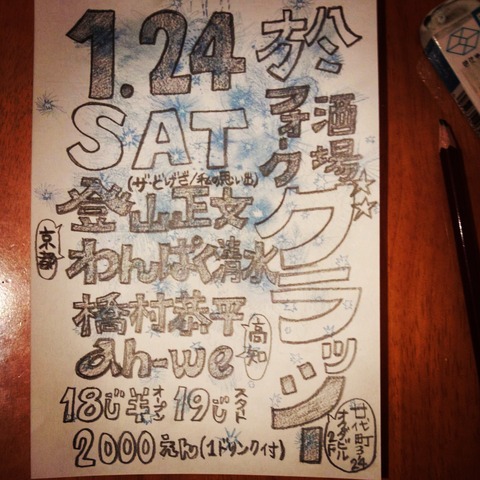 1.24
SAT
於
フォーク酒場
グラッツー
(ザ・どげざ/私の思い出)
登山正文
京都
わんぱく清水
橋村恭平
高知
ah-we
18じ半オープン 19じスタート
2000えん(1ドリンク付)
廿代町3-24
2F